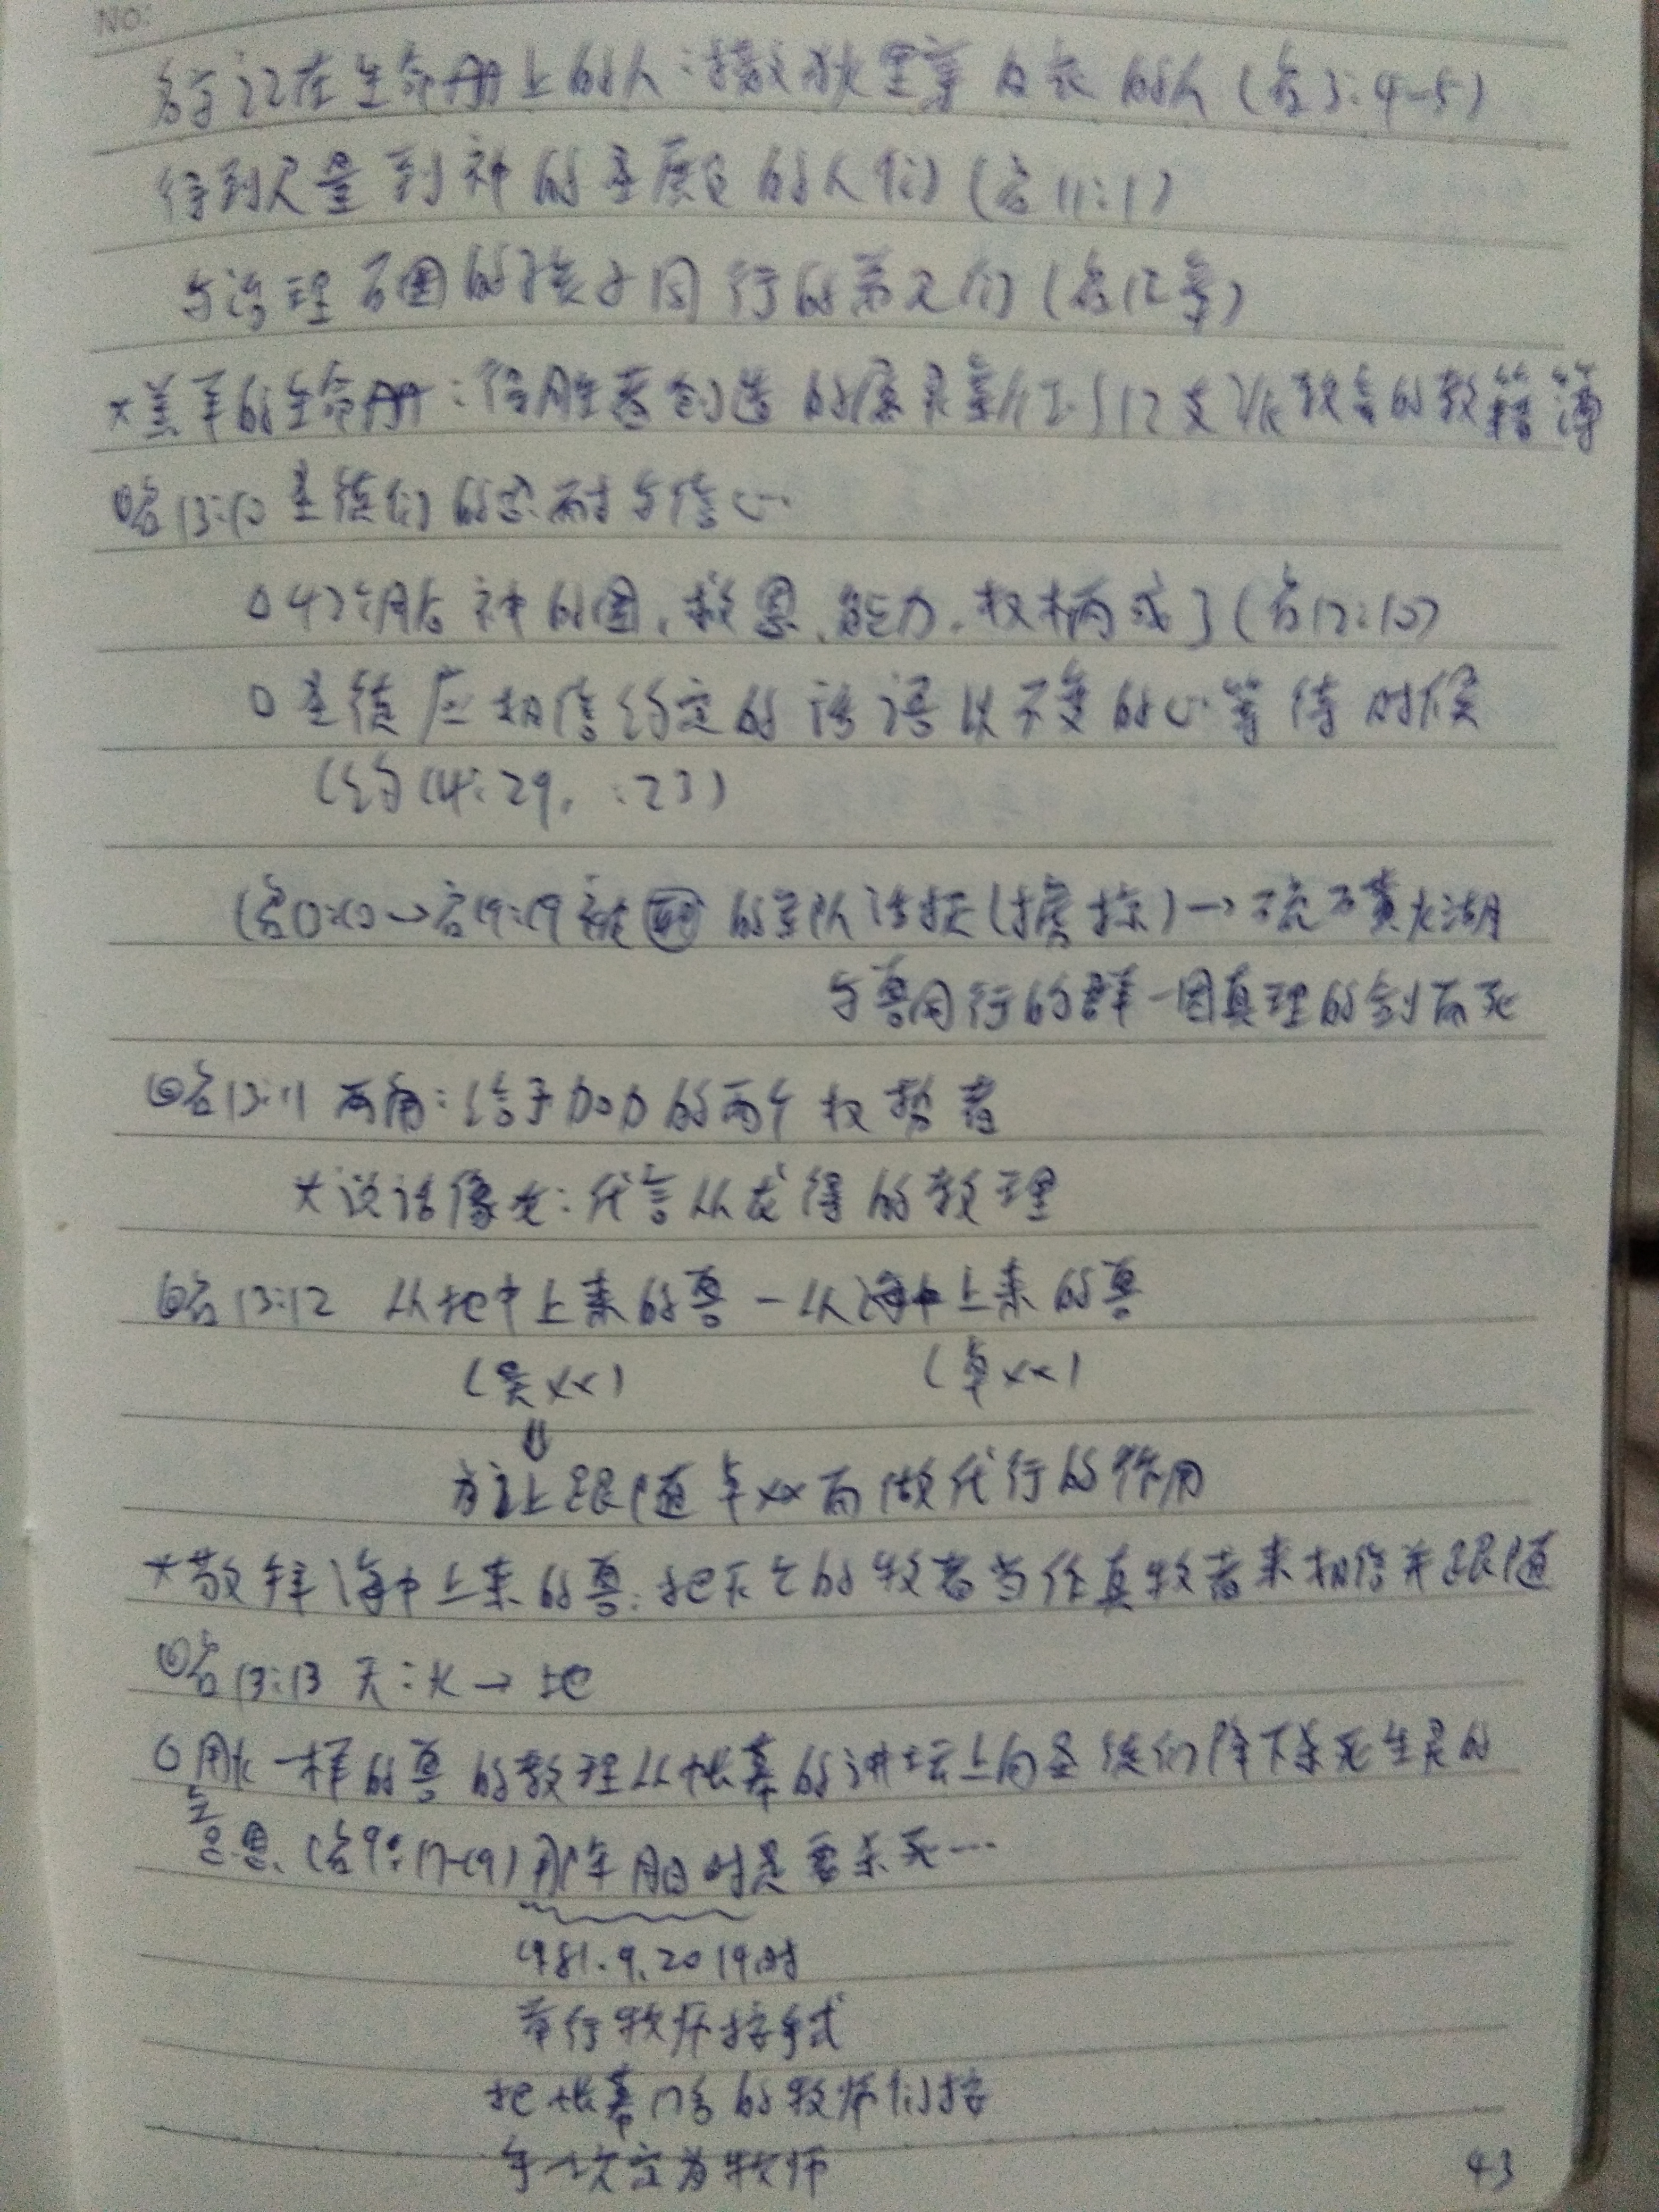 NO:
名字记在生命册上的人:撒狄里穿白衣的人(启3:4-5)
得到尺量到神的圣殿的人们(启11:1)
与治理万国的孩子同行的弟兄们(启12章)
*羔羊的生命册:得胜者创造的 12支派教会的教籍簿
启13:10 圣徒们的忍耐与信心
○42个月后神的国,救恩,能力,权柄成了(启12:10)
○圣徒应相信约定的话语以不变的心等待时候
(约14:29, :23)
(启13:10→启19:19 被 的军队活捉(掳掠)→硫磺火湖
与兽同行的群一因真理的剑而死
启13:11 两角:给予加力的两个权势者
*说话像龙:代言从龙得的教理
启13:12 从地中上来的兽-从海中上来的兽
(吴××) (卓××)
⇓
为让跟随卓××而做代行的作用
*敬拜海中上来的兽:把 的牧者当作真牧者来相信并跟随
启13:13 天:火→地
○用火一样的兽的教理从帐幕的讲坛上向圣徒们降下杀死生灵的
意思.(启9:17-19)那年月日时是要杀死…
1981.9.20 19时
举行牧师按手式
把帐幕 的牧师们按
手 立为牧师
43